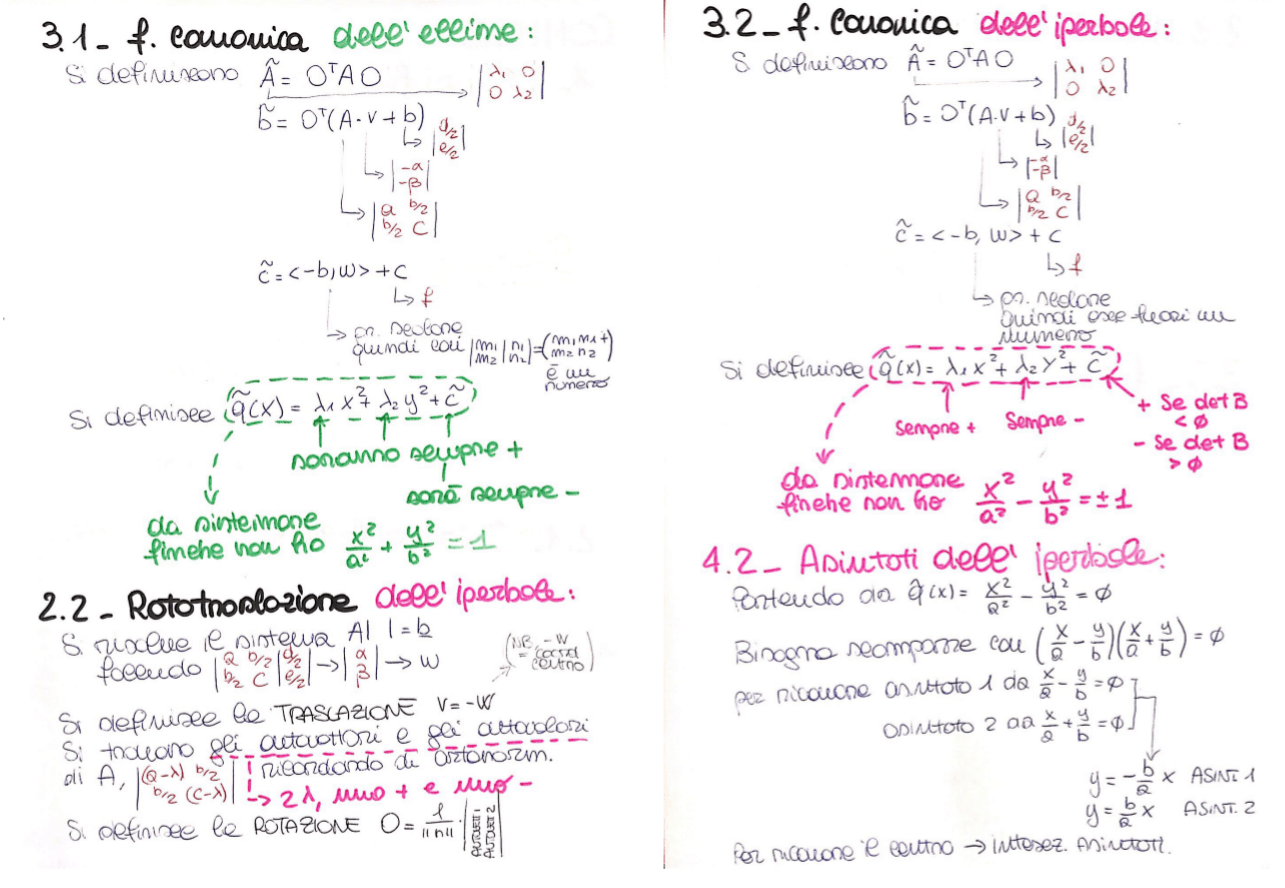 3.1 - f. canonica dell'ellisse:
Si definiscono Ã = OᵀAO
|λ₁ 0|
|0 λ₂|
b̃ = Oᵀ(A·v+b)
|d/2|
|e/2|
|-α|
|-β|
|a b/2|
|b/2 c|
c̃ = <-b,w> + c
↳ f
→ pr. scalare
quindi così |m₁ m₂|n₁ n₂| = (m₁n₁+ m₂n₂)
è un
numero
Si definisce q̃(x) = λ₁x² + λ₂y² + c̃
saranno sempre +
sarà sempre -
da sistemare
finche non ho x²/a² + y²/b² = 1
2.2 - Rototraslazione dell'iperbole:
Si risolve il sistema A| | = b
facendo |a b/2|d/2| → |α| → w
|b/2 c|e/2| |β|
(NB. -w
= coord
centro)
Si definisce la TRASLAZIONE v=-w
Si trovano gli autovettori e gli autovalori
di A, |(a-λ) b/2| ricordando di ortonorm.
|b/2 (c-λ)| ↳ 2λ, uno + e uno -
Si definisce la ROTAZIONE O = 1/||n|| · |AUTOVETT 1 AUTOVETT 2|
3.2 - f. canonica dell'iperbole:
Si definiscono Ã = OᵀAO
|λ₁ 0|
|0 λ₂|
b̃ = Oᵀ(A·v+b)
|d/2|
|e/2|
|-α|
|-β|
|a b/2|
|b/2 c|
c̃ = <-b, w> + c
↳ f
→ pr. scalare
quindi esce fuori un
numero
Si definisce q̃(x) = λ₁x² + λ₂y² + c̃
sempre + sempre -
+ se det B
< ∅
- se det B
> ∅
da sistemare
finche non ho x²/a² - y²/b² = ±1
4.2 - Asintoti dell'iperbole:
Partendo da q̂(x) = x²/a² - y²/b² = ∅
Bisogna scomporre con (x/a - y/b)(x/a + y/b) = ∅
per ricavare asintoto 1 da x/a - y/b = ∅
asintoto 2 da x/a + y/b = ∅
y = -b/a x ASINT. 1
y = b/a x ASINT. 2
Per ricavare il centro → intersez. asintoti.